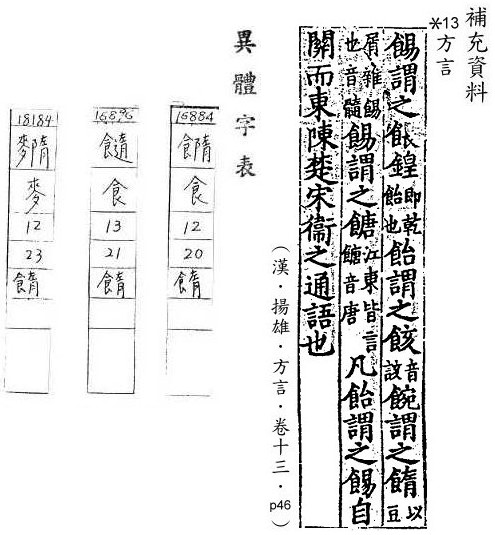 補充資料
※13
方言
餳謂之餦餭即乾飴也飴謂之䬵音該䬼謂之䭉以豆
屑雜餳也音髓餳謂之餹江東皆言餹音唐凡飴謂之餳自
關而東陳楚宋衞之通語也
（漢・揚雄・方言・卷十三・p46）
異體字表
16884
食
12
20
䭉
16896
食
13
21
䭉
18184
麥
12
23
䭉